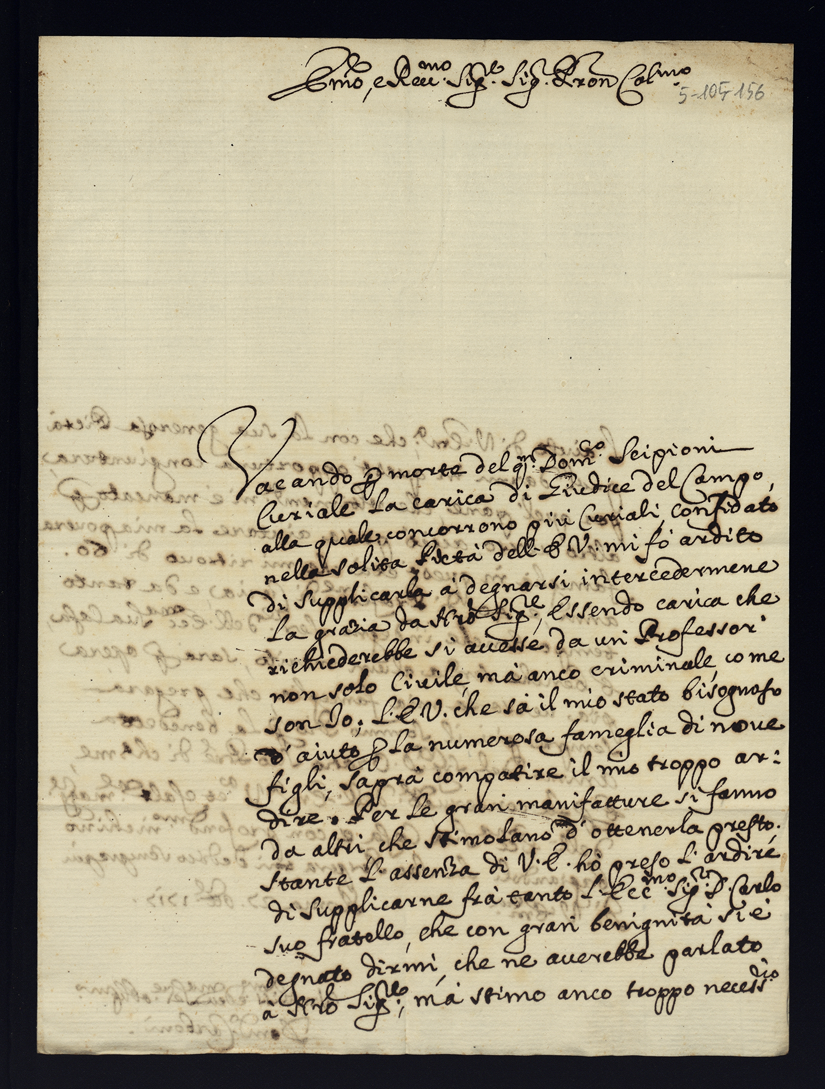 Emo, e Reumo. Sigre. Sigr. Pron Colmo
5-105-156
Vacando p morte del qm. Domco Scipioni
Curiale la carica di Giudice del Campo,
alla quale concorrono più Curiali confidato
nella solita Pietà dell'E.V. mi fò ardito
di supplicarla à degnarsi intercedermene
la grazia da Nro Sigre, Essendo carica che
richiederebbe si avesse da un Professor'
non solo Civile, mà anco criminale, come
son Io; L'E.V. che sà il mio stato bisognoso
d'aiuto p la numerosa fameglia di nove
figli, saprà compatire il mio troppo ar:
dire. Per le gran manifatture si fanno
da altri che stimolano d'ottenerla presto.
stante l'assenza di V.E. hò preso l'ardire
di supplicarne frà tanto l'Eccmo Sigr. D. Carlo
suo fratello, che con gran benignità si è
degnato dirmi, che ne averebbe parlato
à Nro Sigre, mà stimo anco troppo necessdio